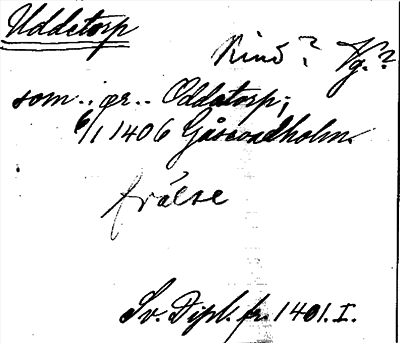 Uddetorp
Kind? Vg.?
som .. gr.. Oddatorp;
6/1 1406 Gåsevadholm.
frälse
Sv. Dipl. fr. 1401. I.